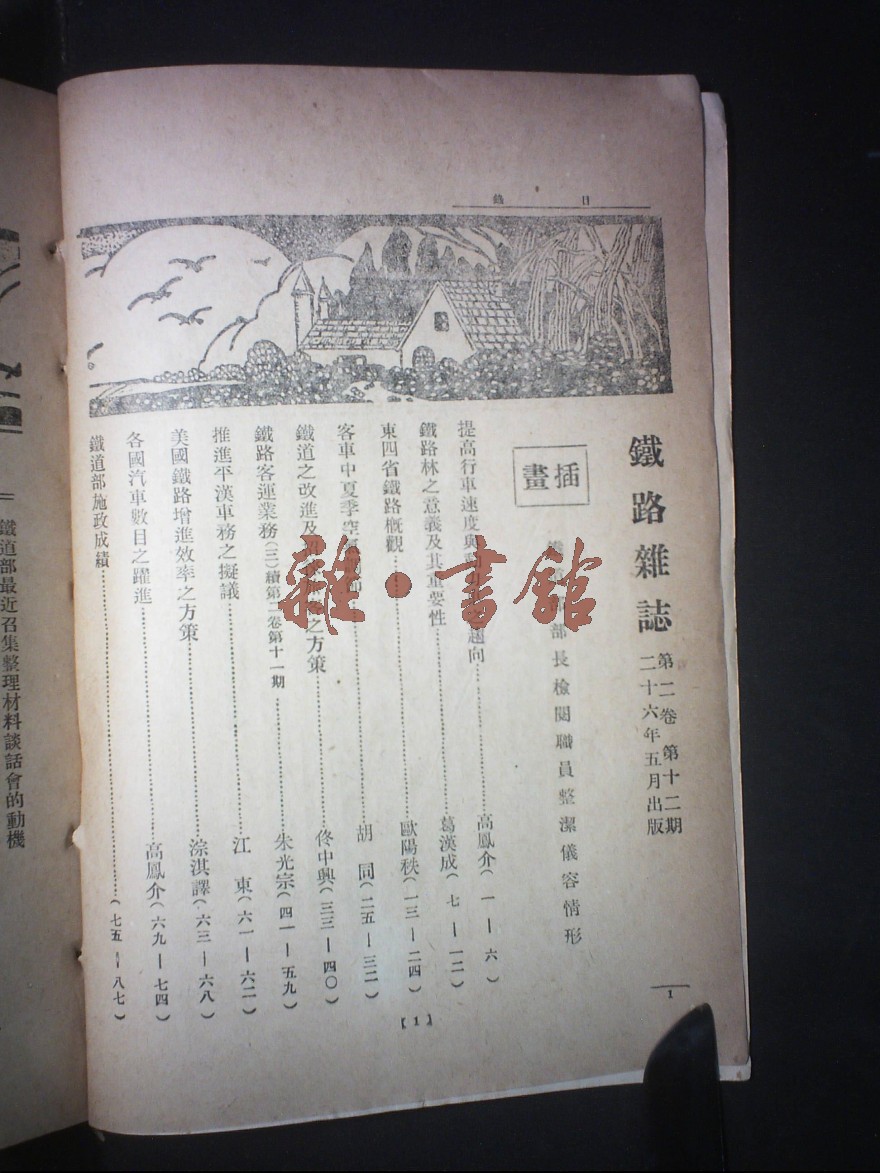 目錄
鐵路雜誌
第二卷 第十二期
二十六年五月出版
插畫
部長檢閱職員整潔儀容情形
提高行車速度與 趨向 高鳳介(一—六)
鐵路林之意義及其重要性 葛漢成(七—一二)
東四省鐵路概觀 歐陽秩(一三—二四)
客車中夏季空氣 胡同(二五—三二)
鐵道之改進及 之方策 佟中興(三三—四〇)
鐵路客運業務(三)續第二卷第十一期 朱光宗(四一—五九)
推進平漢車務之擬議 江東(六一—六二)
美國鐵路增進效率之方策 淙淇譯(六三—六八)
各國汽車數目之躍進 高鳳介(六九—七四)
鐵道部施政成績 (七五—八七)
【1】
1
鐵道部最近召集整理材料談話會的動機
雜·書館